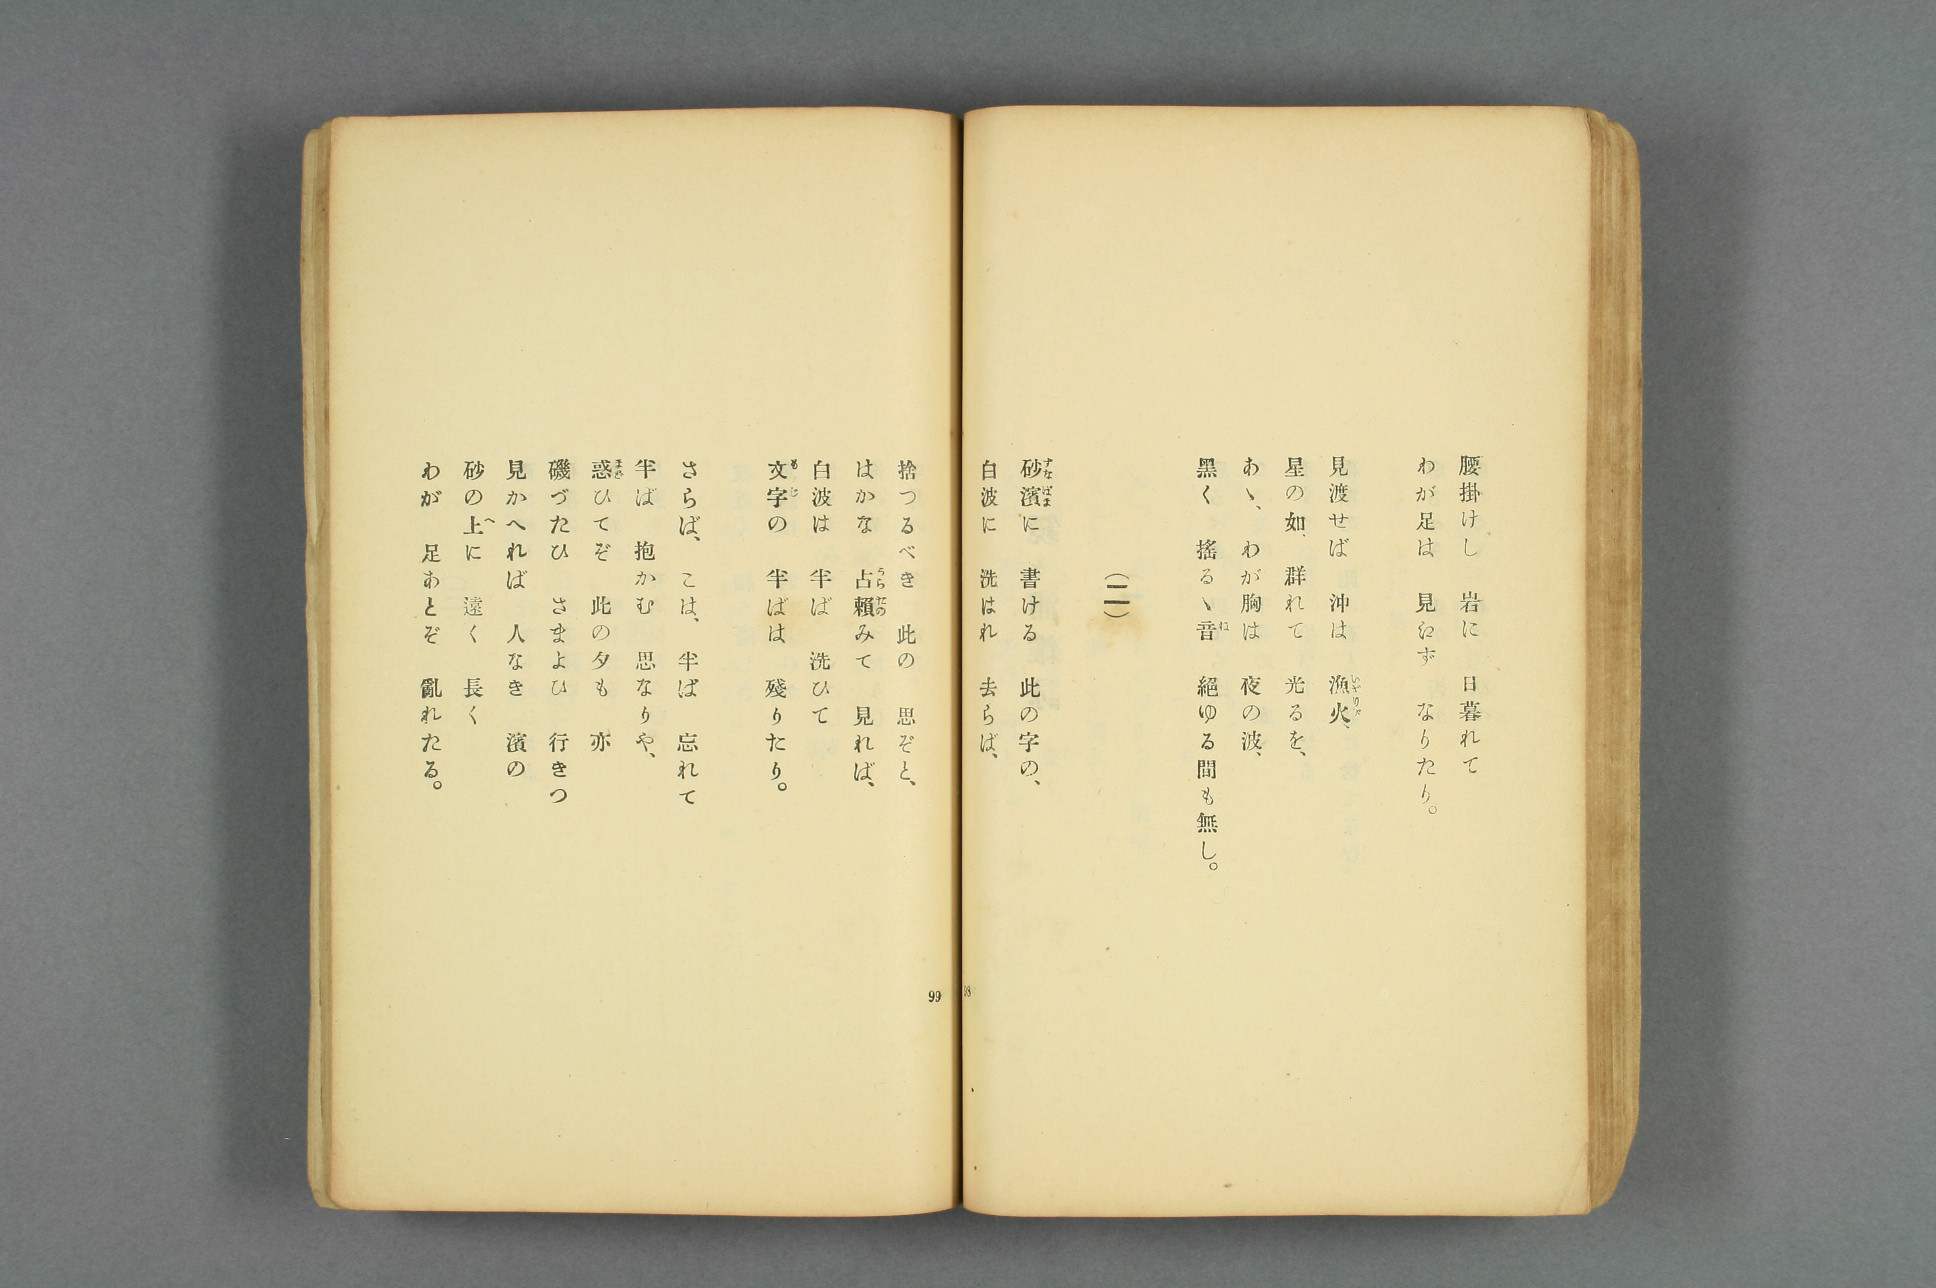 腰掛けし 岩に 日暮れて
わが足は 見えず なりたり。
見渡せば 沖は 漁火、
星の如、群れて 光るを、
あゝ、わが胸は 夜の波、
黑く 搖るゝ音 絕ゆる間も無し。
(二)
砂濱に 書ける 此の字の、
白波に 洗はれ 去らば、
98
捨つるべき 此の 思ぞと、
はかな 占賴みて 見れば、
白波は 半ば 洗ひて
文字の 半ばは 殘りたり。
さらば、こは、半ば 忘れて
半ば 抱かむ 思なりや、
惑ひてぞ 此の夕も 亦
磯づたひ さまよひ 行きつ
見かへれば 人なき 濱の
砂の上に 遠く 長く
わが 足あとぞ 亂れたる。
99